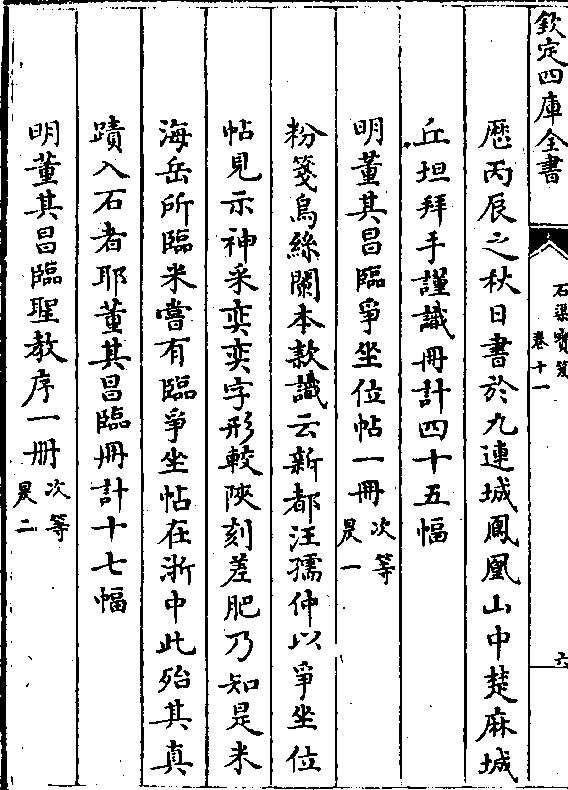 欽定四庫全書
石渠寶笈
卷十一
六
歴丙辰之秋日書於九連城鳳凰山中楚麻城
丘坦拜手謹識冊計四十五幅
明董其昌臨爭坐位帖一冊 次等 晃一
粉箋烏絲闌本款識云新都汪孺仲以爭坐位
帖見示神采奕奕字形較陜刻差肥乃知是米
海岳所臨米嘗有臨爭坐帖在浙中此殆其真
蹟入石者耶董其昌臨冊計十七幅
明董其昌臨聖教序一冊 次等 晃二